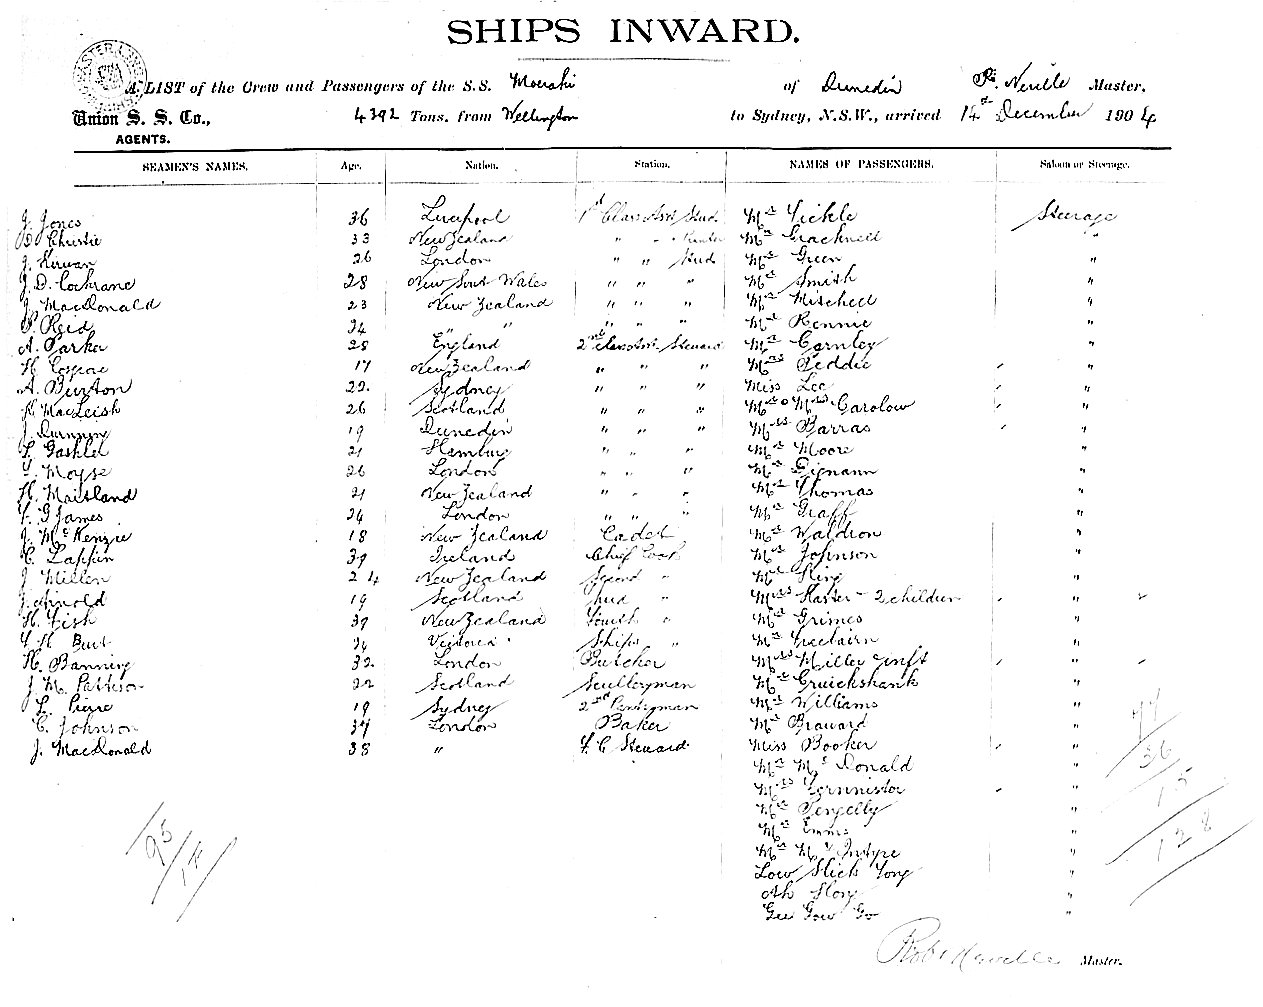 SHIPS INWARD.
A LIST of the Crew and Passengers of the S.S. Moeraki of Dunedin R. Neville Master,
Union S. S. Co., 4392 Tons, from Wellington to Sydney, N.S.W., arrived 14th December 1904
AGENTS.
SEAMEN'S NAMES. Age. Nation. Station. NAMES OF PASSENGERS. Saloon or Steerage.
J. Jones 36 Liverpool 1st Class Asst Stwd Mr Tickle Steerage
D Christie 33 New Zealand " " Mr Gracknell "
J. Kirwan 26 London " " Stwd Mr Green "
J. D. Cochrane 28 New South Wales " " " Mr Smith "
J. MacDonald 23 New Zealand " " " Mr Mitchell "
P. Reid 24 " " " " " Mr Rennie "
A. Parker 28 England 2nd Class Asst Steward Mr Carnley "
H. 17 New Zealand " " " Mrs Peddie "
A. Burton 22. Sydney " " " Miss Lee "
R. MacLeish 26 Scotland " " " Mr & Mrs Garolow "
J. 19 Dunedin " " " Mrs Barras "
L. 21 Hamburg " " " Mr Moore "
T. Moyse 26 London " " " Mr "
H. Maitland 21 New Zealand " " " Mr Thomas "
F. G James 24 London " " " Mr Graff "
J. McKenzie 18 New Zealand Cadet Mr Waldron "
C. Lappin 39 Ireland Chief Cook Mr Johnson "
J. Millen 24 New Zealand Second " Mr King "
J. Arnold 19 Scotland Third " Mrs Harter - 2 children "
H. Fish 39 New Zealand Fourth " Mr Grimes "
F. H Burt 24 Victoria Ships " Mr "
H. Banning 32. London Butcher Mrs Miller & inft "
J. M. Pattison 22 Scotland Scullery man Mr Cruickshank "
L. Pierre 19 Sydney 2nd Pantryman Mr Williams "
C. Johnson 37 London Baker Mr Braward "
J. MacDonald 38 " F. C Steward Miss Booker "
Mr McDonald "
Mrs "
Mr Pengelly "
Mr Emms "
Mr McIntyre "
Low Slick Tong "
Ah Hong "
Gee Gow Go "
77
36
15
128
95
14
Rob Neville Master.